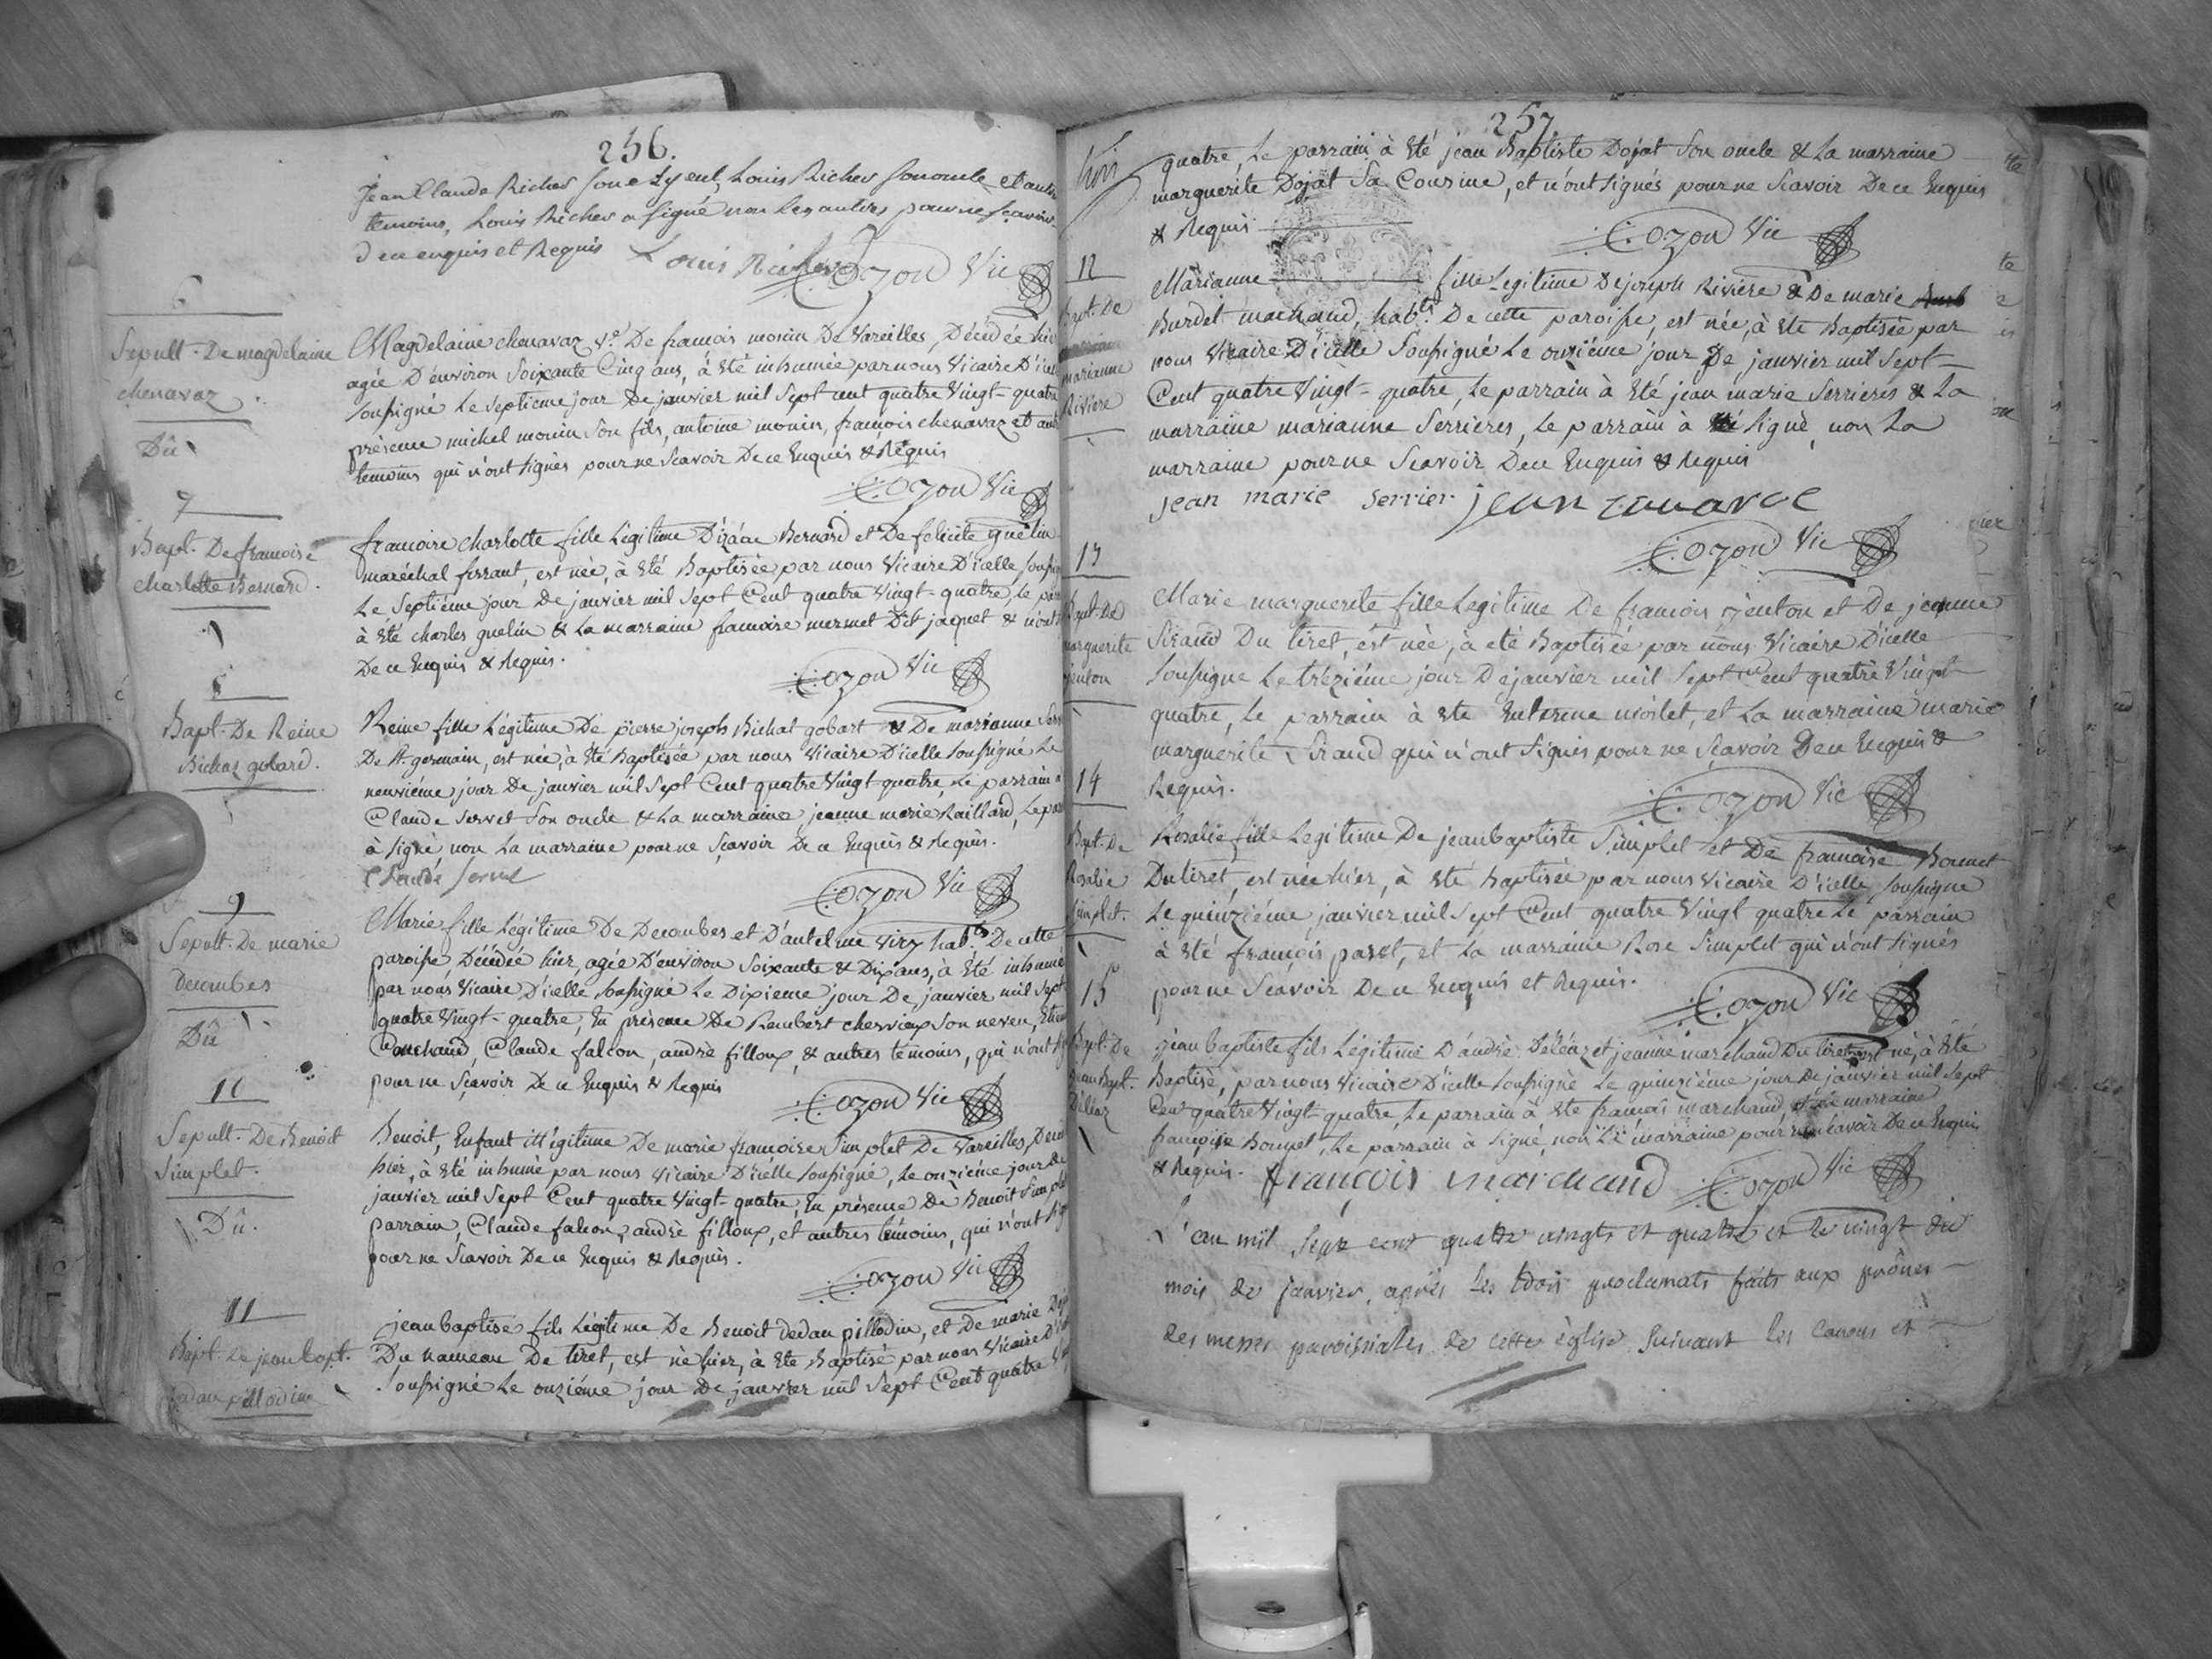 256.
Jean Claude Richer son ayeul, Louis Richer son oncle et autres
temoins, Louis Richer a signé non les autres pour ne scavoir
de ce enquis et Requis Louis Richer Cozon Vic
6
Sepult. De magdelaine
chenavaz
Dû
Magdelaine chenavaz Ve. De francois monin De Vareilles, Décédée hier
agée D'environ Soixante Cinq ans, à été inhumée par nous Vicaire D'icelle
soussigné Le septieme jour De janvier mil sept cent quatre Vingt-quatre
présence michel monin son fils, antoine monin, francois chenavaz et autres
temoins qui n'ont signés pour ne scavoir De ce Enquis & Requis
Cozon Vic
7
Bapt. De francoise
charlotte Bernard.
francoise charlotte fille Légitime D'izâac Bernard et De felicité guelin
maréchal ferrant, est née, à été Baptisée par nous Vicaire D'icelle soussigné
Le Septiéme jour De janvier mil sept Cent quatre Vingt-quatre, le parrain
à été charles guelin & La marraine francoise mermet Dit jaquet & n'ont
De ce Enquis & Requis.
Cozon Vic
8
Bapt. De Reine
Bichaz gobard.
Reine fille Légitime De pierre joseph Bichat gobart & De marianne
De st. germain, est née, à été Baptisée par nous Vicaire D'icelle soussigné Le
neuviéme jour De janvier mil sept Cent quatre Vingt quatre, Le parrain a
Claude Servet son oncle & La marraine jeanne marie Raillard, Le parrain
à signé non La marraine pour ne Scavoir De ce Enquis & Requis.
Claude Servet
Cozon Vic
9
Sepult. De marie
Decombes
Dû
Marie fille Légitime De Decombes et D'antelme Viry habts. De cette
paroisse Décédée hier, agée D'environ Soixante & Dix ans, à été inhumée
par nous Vicaire D'icelle soussigné Le Dixieme jour De janvier mil sept
quatre Vingt-quatre, En présence De Rambert chervieux son neveu,
Claude falcon, andré filloux, & autres témoins, qui n'ont
pour ne Scavoir De ce Enquis & Requis
Cozon Vic
10
Sepult. De Benoit
Simplet.
Dû.
Benoit, Enfant illégitime De marie francoise Simplet De Vareilles, Décédé
hier, à été inhumé par nous Vicaire D'icelle soussigné, Le onziéme jour De
janvier mil sept Cent quatre Vingt-quatre, En présence De Benoit Simplet
parrain, Claude falcon, andré filloux, et autres témoins, qui n'ont
pour ne Scavoir De ce Enquis & Requis.
Cozon Vic
11
Bapt. De jean bapt.
dedan pillodin
jean baptise fils Légitime De Benoit dedan pillodin, et De marie
Du hameau De tiret, est né hier, à été Baptisé par nous Vicaire D'icelle
soussigné Le onziéme jour De janvier mil sept Cent quatre
257
quatre, Le parrain à été jean Baptiste Dojat son oncle & La marraine
marguerite Dojat Sa Cousine, et n'ont signés pour ne Scavoir De ce Enquis
& Requis
Cozon Vic
12
Bapt. De
marianne
Riviere
Marianne fille Legitime De joseph Riviere & De marie
Burdet machand, habts. De cette paroisse, est née, à été Baptisée par
nous Vicaire D'icelle Soussigné Le onziéme jour De janvier mil sept
Cent quatre Vingt-quatre, Le parrain à été jean marie Serrieres & La
marraine marianne Serrieres, Le parrain à signé, non La
marraine pour ne Scavoir De ce Enquis & Requis
jean marie serrier
Cozon Vic
13
Bapt. De
marguerite
jenton
Marie marguerite fille Legitime De francois jenton et De jeanne
Sirand Du tiret, est née, à été Baptisée par nous Vicaire D'icelle
soussigné Le tréziéme jour De janvier mil sept Cent quatre Vingt
quatre, Le parrain à été Antelme moilet, et La marraine marie
marguerite Sirand qui n'ont signés pour ne Scavoir De ce Enquis &
Requis.
Cozon Vic
14
Bapt. De
Rosalie
Simplet.
Rosalie fille Legitime De jean baptiste Simplet et De francoise Bonnet
Du tiret, est née hier, à été Baptisée par nous Vicaire D'icelle soussigné
Le quinziéme janvier mil sept Cent quatre Vingt quatre Le parrain
à été françois paret, et La marraine Rose Simplet qui n'ont signés
pour ne Scavoir De ce Enquis et Requis.
Cozon Vic
15
Bapt. De
jean Bapt.
Déléaz
jean baptiste fils Légitime D'andré Déléaz et jeanne marchand Du tiret est né, à été
Baptisé, par nous Vicaire D'icelle soussigné Le quinziéme jour De janvier mil sept
Cent quatre Vingt-quatre, Le parrain à été francois marchand, et La marraine
françoise Bonnet, Le parrain à signé, non La marraine pour ne Scavoir De ce Enquis
& Requis. françois marchand Cozon Vic
L'an mil sept cent quatre vingts et quatre et le vingt du
mois de janvier, après les trois proclamats faits aux prônes
des messes paroissiales de cette église suivant les canons et